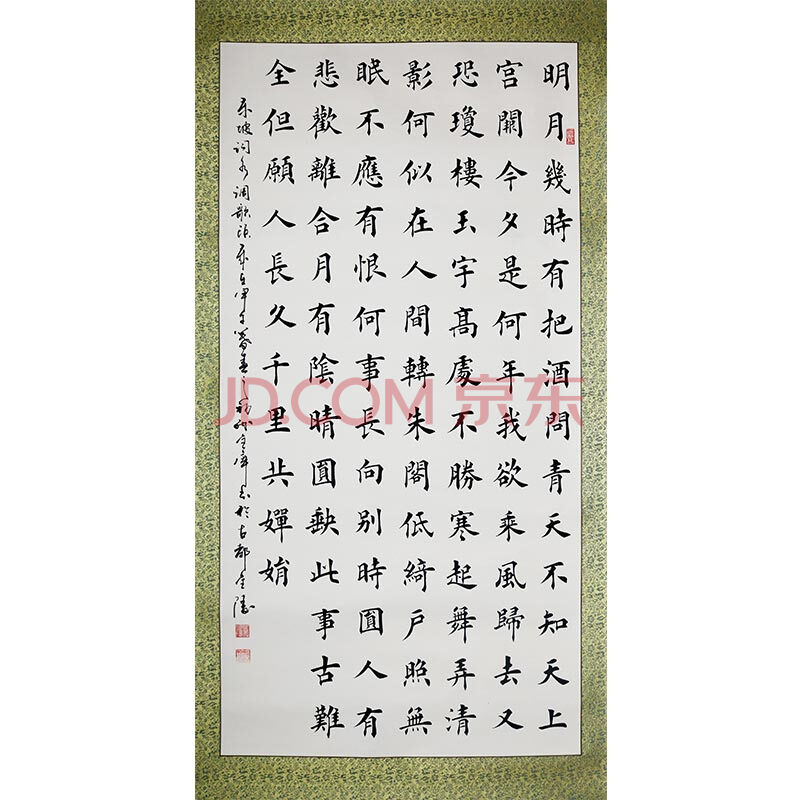 明月幾時有把酒問青天不知天上
宮闕今夕是何年我欲乘風歸去又
恐瓊樓玉宇高處不勝寒起舞弄清
影何似在人間轉朱閣低綺戶照無
眠不應有恨何事長向別時圓人有
悲歡離合月有陰晴圓缺此事古難
全但願人長久千里共嬋娟
东坡词水调歌頭歲在甲午暮春之於古都金陵
JD.COM 京东